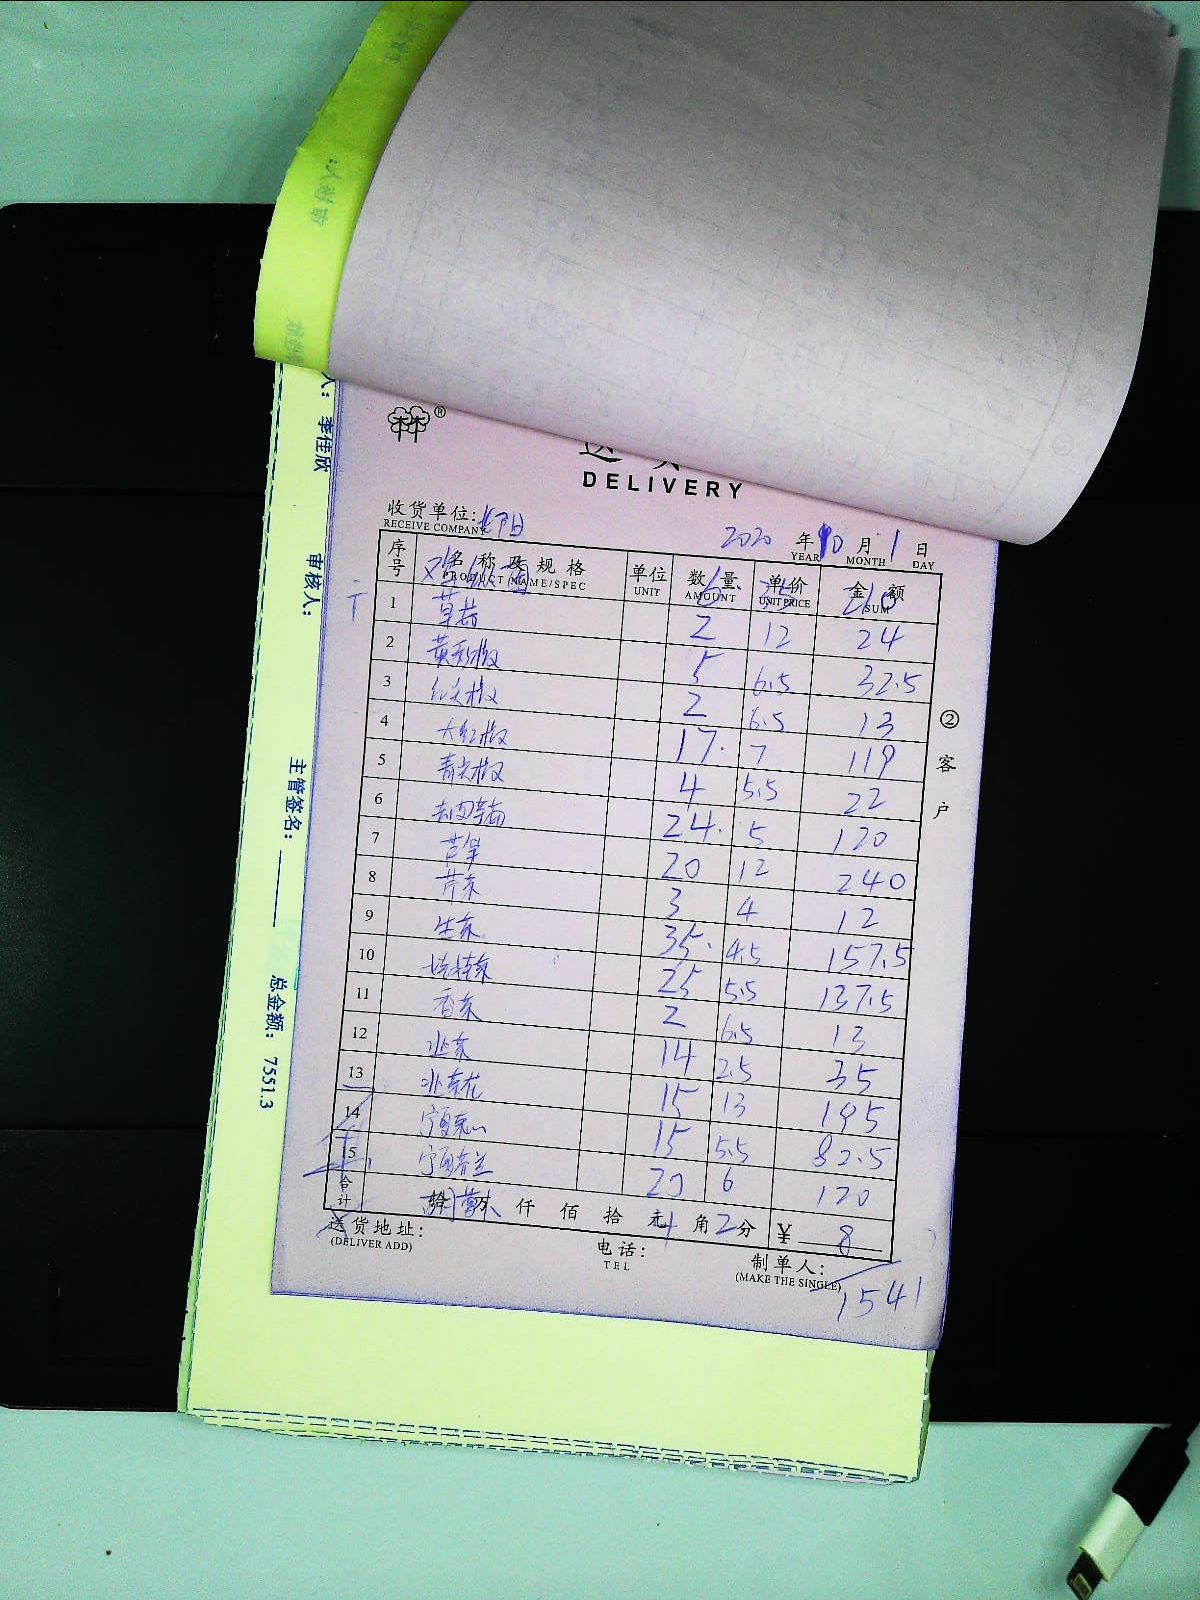 李佳欣
审核人:
主管签名:
总金额: 7551.3
林 ®
DELIVERY
收货单位:
RECEIVE COMPANY
2020 年 10 月 1 日
YEAR MONTH DAY
序号 名称及规格 单位 数量 单价 金额
PRODUCT NAME/SPEC UNIT AMOUNT UNIT PRICE SUM
6 35 210
1 草菇 2 12 24
2 黄彩椒 5 6.5 32.5
3 红尖椒 2 6.5 13
4 大红椒 17 7 119
5 青尖椒 4 5.5 22
6 24 5 120
7 芦笋 20 12 240
8 芹菜 3 4 12
9 生菜 35 4.5 157.5
10 25 5.5 137.5
11 香菜 2 6.5 13
12 14 2.5 35
13 15 13 195
14 宁夏菜心 15 5.5 82.5
15 20 6 120
合计 仟 佰 拾 元 角 分 ¥ 8
1 2
送货地址:
(DELIVER ADD)
电话:
TEL
制单人:
(MAKE THE SINGLE)
1541
② 客户